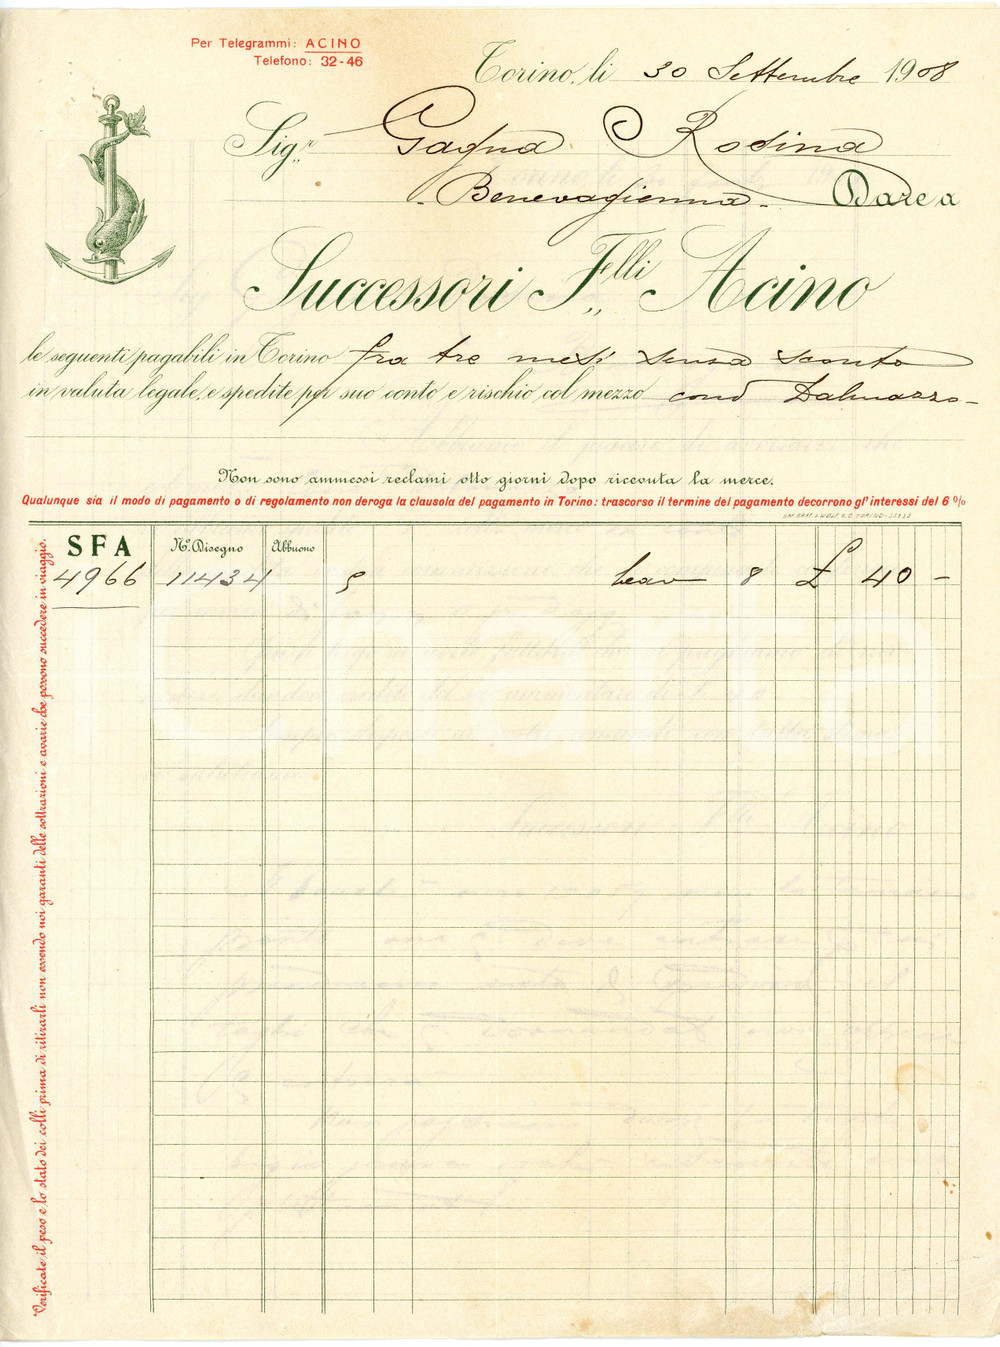 Per Telegrammi: ACINO
Telefono: 32-46
Torino, li 30 Settembre 1908
Sig.r Gagna Rosina
- Benevagienna - Dare a
Successori F.lli Acino
le seguenti pagabili in Torino fra tre mesi senza sconto
in valuta legale, e spedite per suo conto e rischio col mezzo cond Dalmazzo -
Non sono ammessi reclami otto giorni dopo ricevuta la merce.
Qualunque sia il modo di pagamento o di regolamento non deroga la clausola del pagamento in Torino: trascorso il termine del pagamento decorrono gl'interessi del 6 %
SFA N.o Disegno Abbuono
4966 11434 5 8 £ 40 -
Verificate il peso e lo stato dei colli prima di ritirarli non essendo noi garanti delle sottrazioni e avarie che possono succedere in viaggio.